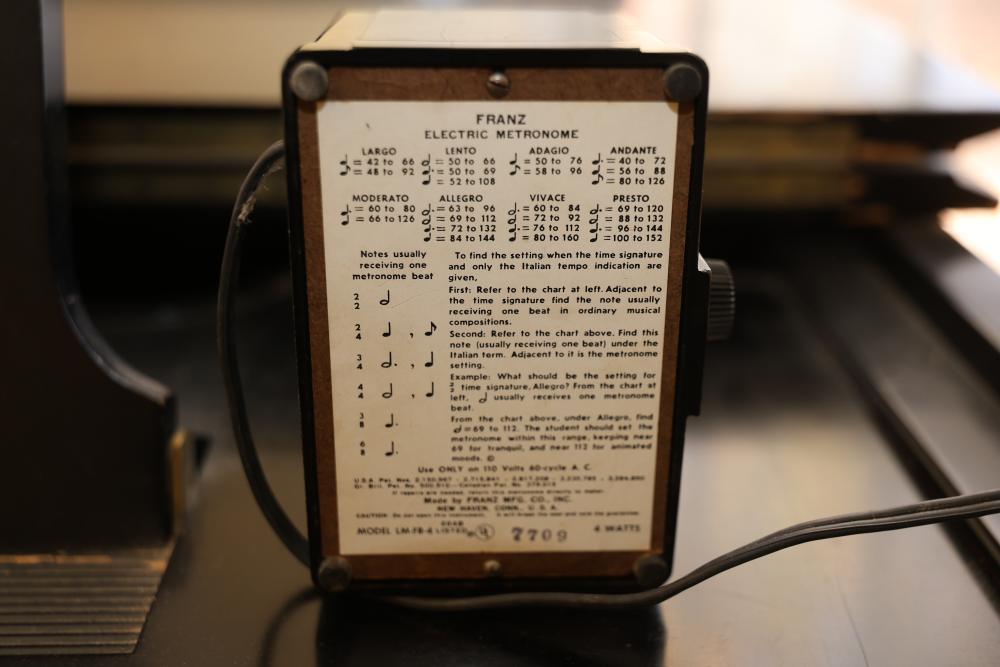 FRANZ
ELECTRIC METRONOME
LARGO LENTO ADAGIO ANDANTE
𝅗𝅥 = 42 to 66 𝅗𝅥. = 50 to 66 ♪ = 50 to 76 𝅗𝅥. = 40 to 72
♪ = 48 to 92 ♩. = 50 to 69 = 58 to 96 ♩. = 56 to 88
♩ = 52 to 108 ♪ = 80 to 126
MODERATO ALLEGRO VIVACE PRESTO
= 60 to 80 𝅗𝅥. = 63 to 96 𝅗𝅥. = 60 to 84 𝅗𝅥. = 69 to 120
= 66 to 126 𝅗𝅥 = 69 to 112 𝅗𝅥 = 72 to 92 𝅗𝅥 = 88 to 132
♩. = 72 to 132 ♩. = 76 to 112 ♩. = 96 to 144
♩ = 84 to 144 ♩ = 80 to 160 ♩ = 100 to 152
Notes usually
receiving one
metronome beat
2
2 𝅗𝅥
2
4 ♩ , ♪
3
4 𝅗𝅥. , ♩
4
4 𝅗𝅥 , ♩
3
8 ♩.
6
8 ♩.
To find the setting when the time signature
and only the Italian tempo indication are
given,
First: Refer to the chart at left. Adjacent to
the time signature find the note usually
receiving one beat in ordinary musical
compositions.
Second: Refer to the chart above. Find this
note (usually receiving one beat) under the
Italian term. Adjacent to it is the metronome
setting.
Example: What should be the setting for
2/2 time signature, Allegro? From the chart at
left, 𝅗𝅥 usually receives one metronome
beat.
From the chart above, under Allegro, find
𝅗𝅥 = 69 to 112. The student should set the
metronome within this range, keeping near
69 for tranquil, and near 112 for animated
moods. ©
Use ONLY on 110 Volts 60-cycle A. C.
U.S.A. Pat. Nos. 2,150,967
Gr. Brit. Pat. No. 500,510 — Canadian Pat. No.
If repairs are needed, return this metronome directly to maker.
Made by FRANZ MFG. CO., INC.
NEW HAVEN, CONN., U. S. A.
CAUTION: Do not open this instrument. It will break the seal and void the guarantee.
MODEL LM-FB-4 LISTED UL 7709 4 WATTS